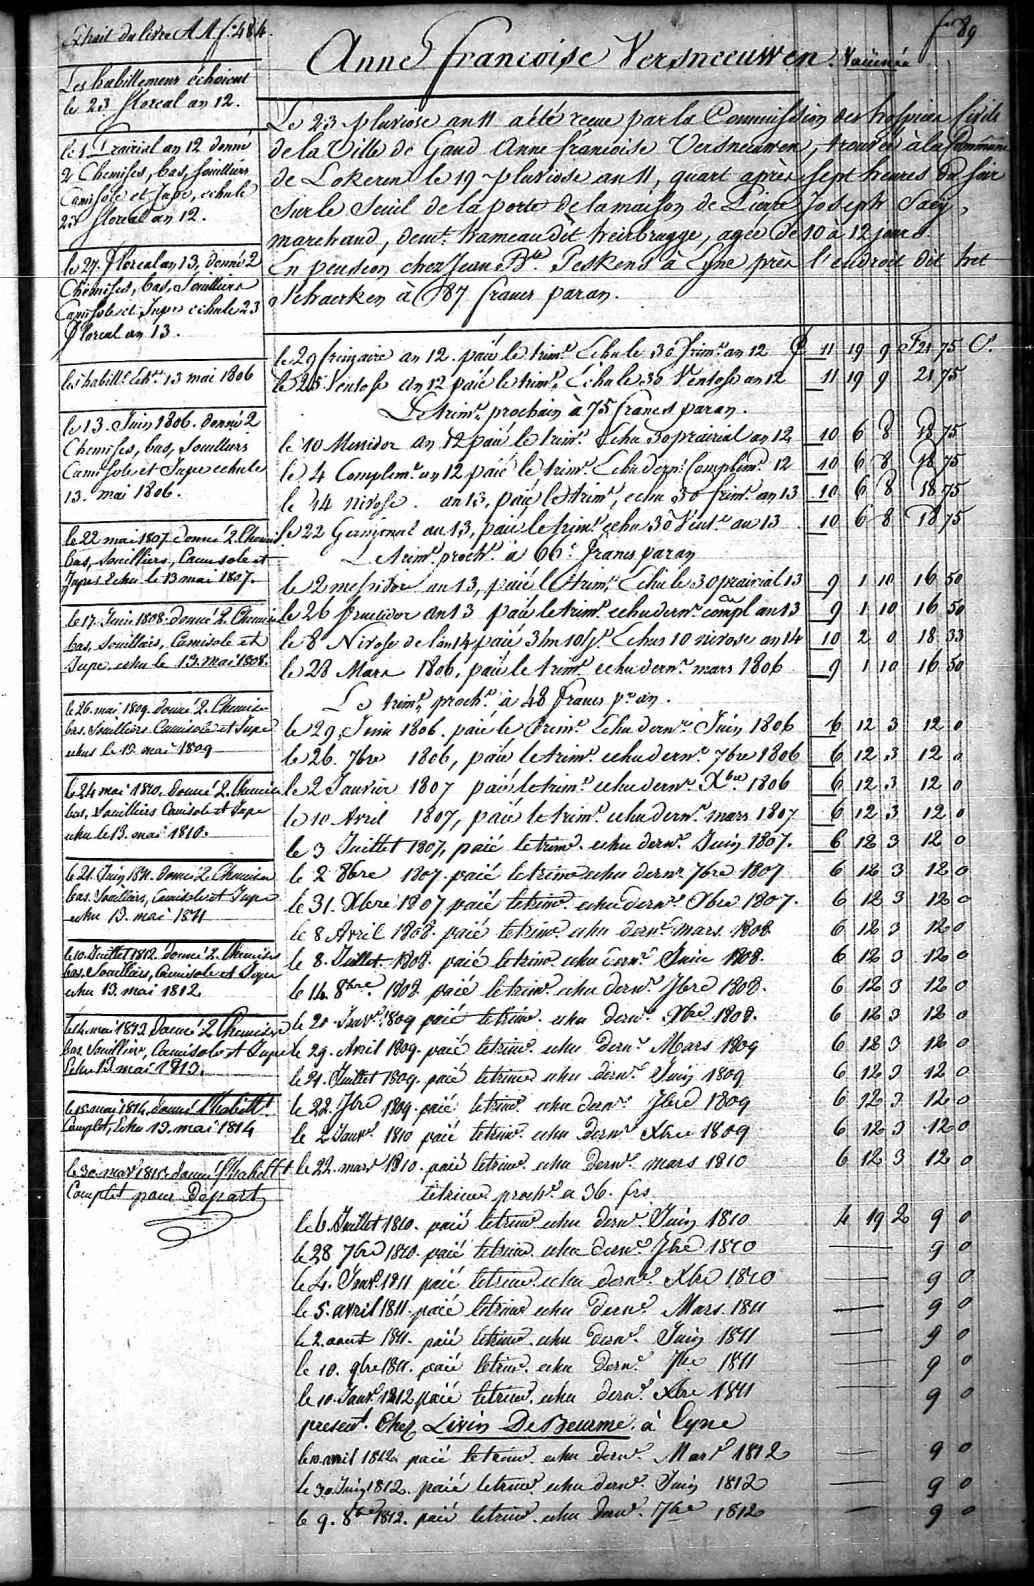 Extrait du livre AA f.º 484.
fº 89
Anne francoise Versneeuwen Vaccinée
Les habillemens échoient
le 23 floreal an 12.
le 1 Prairial an 12 donné
2 Chemises, bas, souilliers
Camisole et Jupe, echu le
23 floreal an 12.
le 27. floreal an 13, donné 2
Chemises, bas, Souilliers
Camisole et Jupe echu le 23
floreal an 13.
les habillts. 13 mai 1806
le 13. Juin 1806. donné 2
Chemises, bas, Souilliers
Camisole et Jupe echu le
13. mai 1806.
le 22 mai 1807 donné 2 Chemis.
bas, souilliers, Camisole et
Jupes Echu le 13 mai 1807.
le 17. Juin 1808. donné 2. Chemise
bas, Souilliers, Camisole et
Jupe. echu le 13. mai 1808.
le 26. mai 1809. donné 2. Chemise
bas. Souilliers Camisole et Jupe
echus le 13 mai 1809
le 24 mai 1810. donné 2. Chemise
bas, Souilliers Camisole et Jupe
echu le 13. mai 1810.
le 21. Juin 1811. donné 2. Chemise
bas. Souilliers, Camisole et Jupe
echu 13. mai 1811
le 10. Juillet 1812. donné 2. Chemises
bas. Souilliers, Camisole et Jupe
echu 13. mai 1812
le 14. mai 1813 donné 2 Chemises
bas Souilliers, Camisole et Jupe
Echu 13 mai 1813.
le 18 mai 1814 donné l'habillt.
Complet, Echu 13. mai 1814
le 30 mars 1815 donné l'habillt
Complet pour Départ
Le 23 pluviose an 11 a été recue par la Commission des hospices Civils
de la Ville de Gand Anne francoise Versneeuwen, trouvée à la Commune
de Lokeren le 19 pluviose an 11, quart après sept heures du soir
sur le Seuil de la porte de la maison de Pierre Joseph Saey,
marchand, demt. hameau dit heirbrugge, agée de 10 à 12 jours.
En pension chez Jean Bte. Peskens à Eyne près l'endroit dit het
Schaerken à 87 francs par an.
le 29 frimaire an 12. paié le trimre. Echu le 30 frimre. an 12 11 19 9 F 21 75 Cs.
le 25 Ventose an 12 paié le trimre. Echu le 30 Ventose an 12 11 19 9 21 75
Le trimre. prochain à 75 francs par an.
le 10 Messidor an 12 paié le trimre. Echu 30 prairial an 12 10 6 8 18 75
le 4 Complemre. an 12 paié le trimre. Echu dernr. Complemre. 12 10 6 8 18 75
le 14 nivose. an 13, paié le trimre. echu 30 frimre. an 13 10 6 8 18 75
le 22 Germinal an 13, paié le trimre. echu 30 Vente. an 13 10 6 8 18 75
Le trimre. prochn. a 66 francs par an
le 2 messidor an 13, paié le trimre. Echu le 30 prairial 13 9 1 10 16 50
le 26 fructidor an 13 paié le trimre. echu dernr. compl. an 13 9 1 10 16 50
le 8 Nivose de l'an 14 paié 3 m 10 jrs. Echus 10 nivose an 14 10 2 0 18 33
le 28 Mars 1806, paié le trimre. echu dernr. mars 1806 9 1 10 16 50
Le trimre. prochn. à 48 francs pr. an.
le 29, Juin 1806. paié le trimre. Echu dernr. Juin 1806 6 12 3 12 0
le 26. 7bre 1806, paié le trimre. echu dernr. 7bre 1806 6 12 3 12 0
le 2 Janvier 1807 paié le trimre. echu dernr. Xbre. 1806 6 12 3 12 0
le 10 Avril 1807, paié le trimre. echu dernr. mars 1807 6 12 3 12 0
le 3 Juillet 1807, paié le trimre. echu dernr. Juin 1807. 6 12 3 12 0
le 2 8bre 1807. paié le trimre echu dernr 7bre 1807 6 12 3 12 0
le 31. Xbre 1807 paié le trimre. echu dernr. Xbre 1807. 6 12 3 12 0
le 8 Avril 1808. paié le trimre. echu dernr. mars. 1808 6 12 3 12 0
le 8. Juillet. 1808. paié le trimre echu dernr. Juin 1808. 6 12 3 12 0
le 14. 8bre. 1808 paié le trimre. echu dernr. 7bre 1808. 6 12 3 12 0
le 20. Janvr. 1809 paié le trimre. echu dernr. Xbre 1808. 6 12 3 12 0
le 29. Avril 1809. paié le trimre. echu dernr. Mars 1809 6 12 3 12 0
le 21. Juillet 1809. paié le trimre echu dernr. Juin 1809 6 12 3 12 0
le 22. 7bre 1809. paié le trimre. echu dernr. 7bre 1809 6 12 3 12 0
le 2 Janvr. 1810 paié le trimre. echu dernr. Xbre 1809 6 12 3 12 0
le 22. mars 1810. paié le trimre. echu dernr. mars 1810 6 12 3 12 0
le trimre prochn. a 36. frs
le 6 Juillet 1810. paié le trimre. echu dernr. Juin 1810 4 19 2 9 0
le 28 7bre 1810. paié le trimre. echu dernr. 7bre 1810 9 0
le 4. Janvr. 1811 paié le trimre. echu dernr. Xbre 1810 9 0
le 5. avril 1811. paié le trimre. echu dernr. Mars. 1811 9 0
le 2. aout 1811. paié le trimre. echu dernr. Juin 1811 9 0
le 10. 9bre 1811. paié le trimre. echu dernr. 7bre 1811 9 0
le 10. Janvr. 1812 paié le trimre. echu dernr. Xbre 1811 9 0
present. Chez Livin DeBeurme. à Eyne
le 10 avril 1812. paié le trimre. echu dernr. Mars 1812 9 0
le 30 Juin 1812. paié le trimre. echu dernr. Juin 1812 9 0
le 9. 8bre 1812. paié le trimre. echu dernr. 7bre 1812 9 0